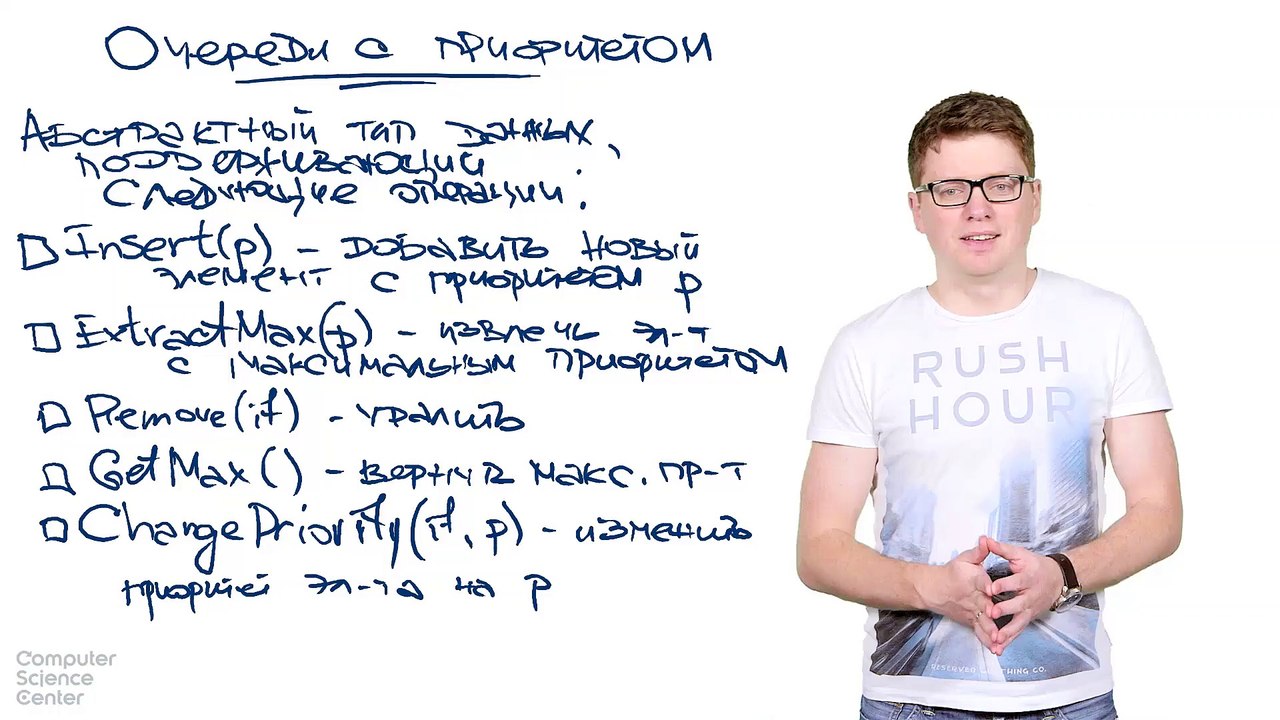 Очереди с приоритетом
Абстрактный тип данных,
поддерживающий
следующие операции:
Insert(p) – добавить новый
элемент с приоритетом p
ExtractMax(p) – извлечь эл-т
с максимальным приоритетом
Remove(it) – удалить
GetMax() – вернуть макс. пр-т
ChangePriority(it, p) – изменить
приоритет эл-та на p
RUSH
HOUR
RESERVED CLOTHING CO.
Computer
Science
Center